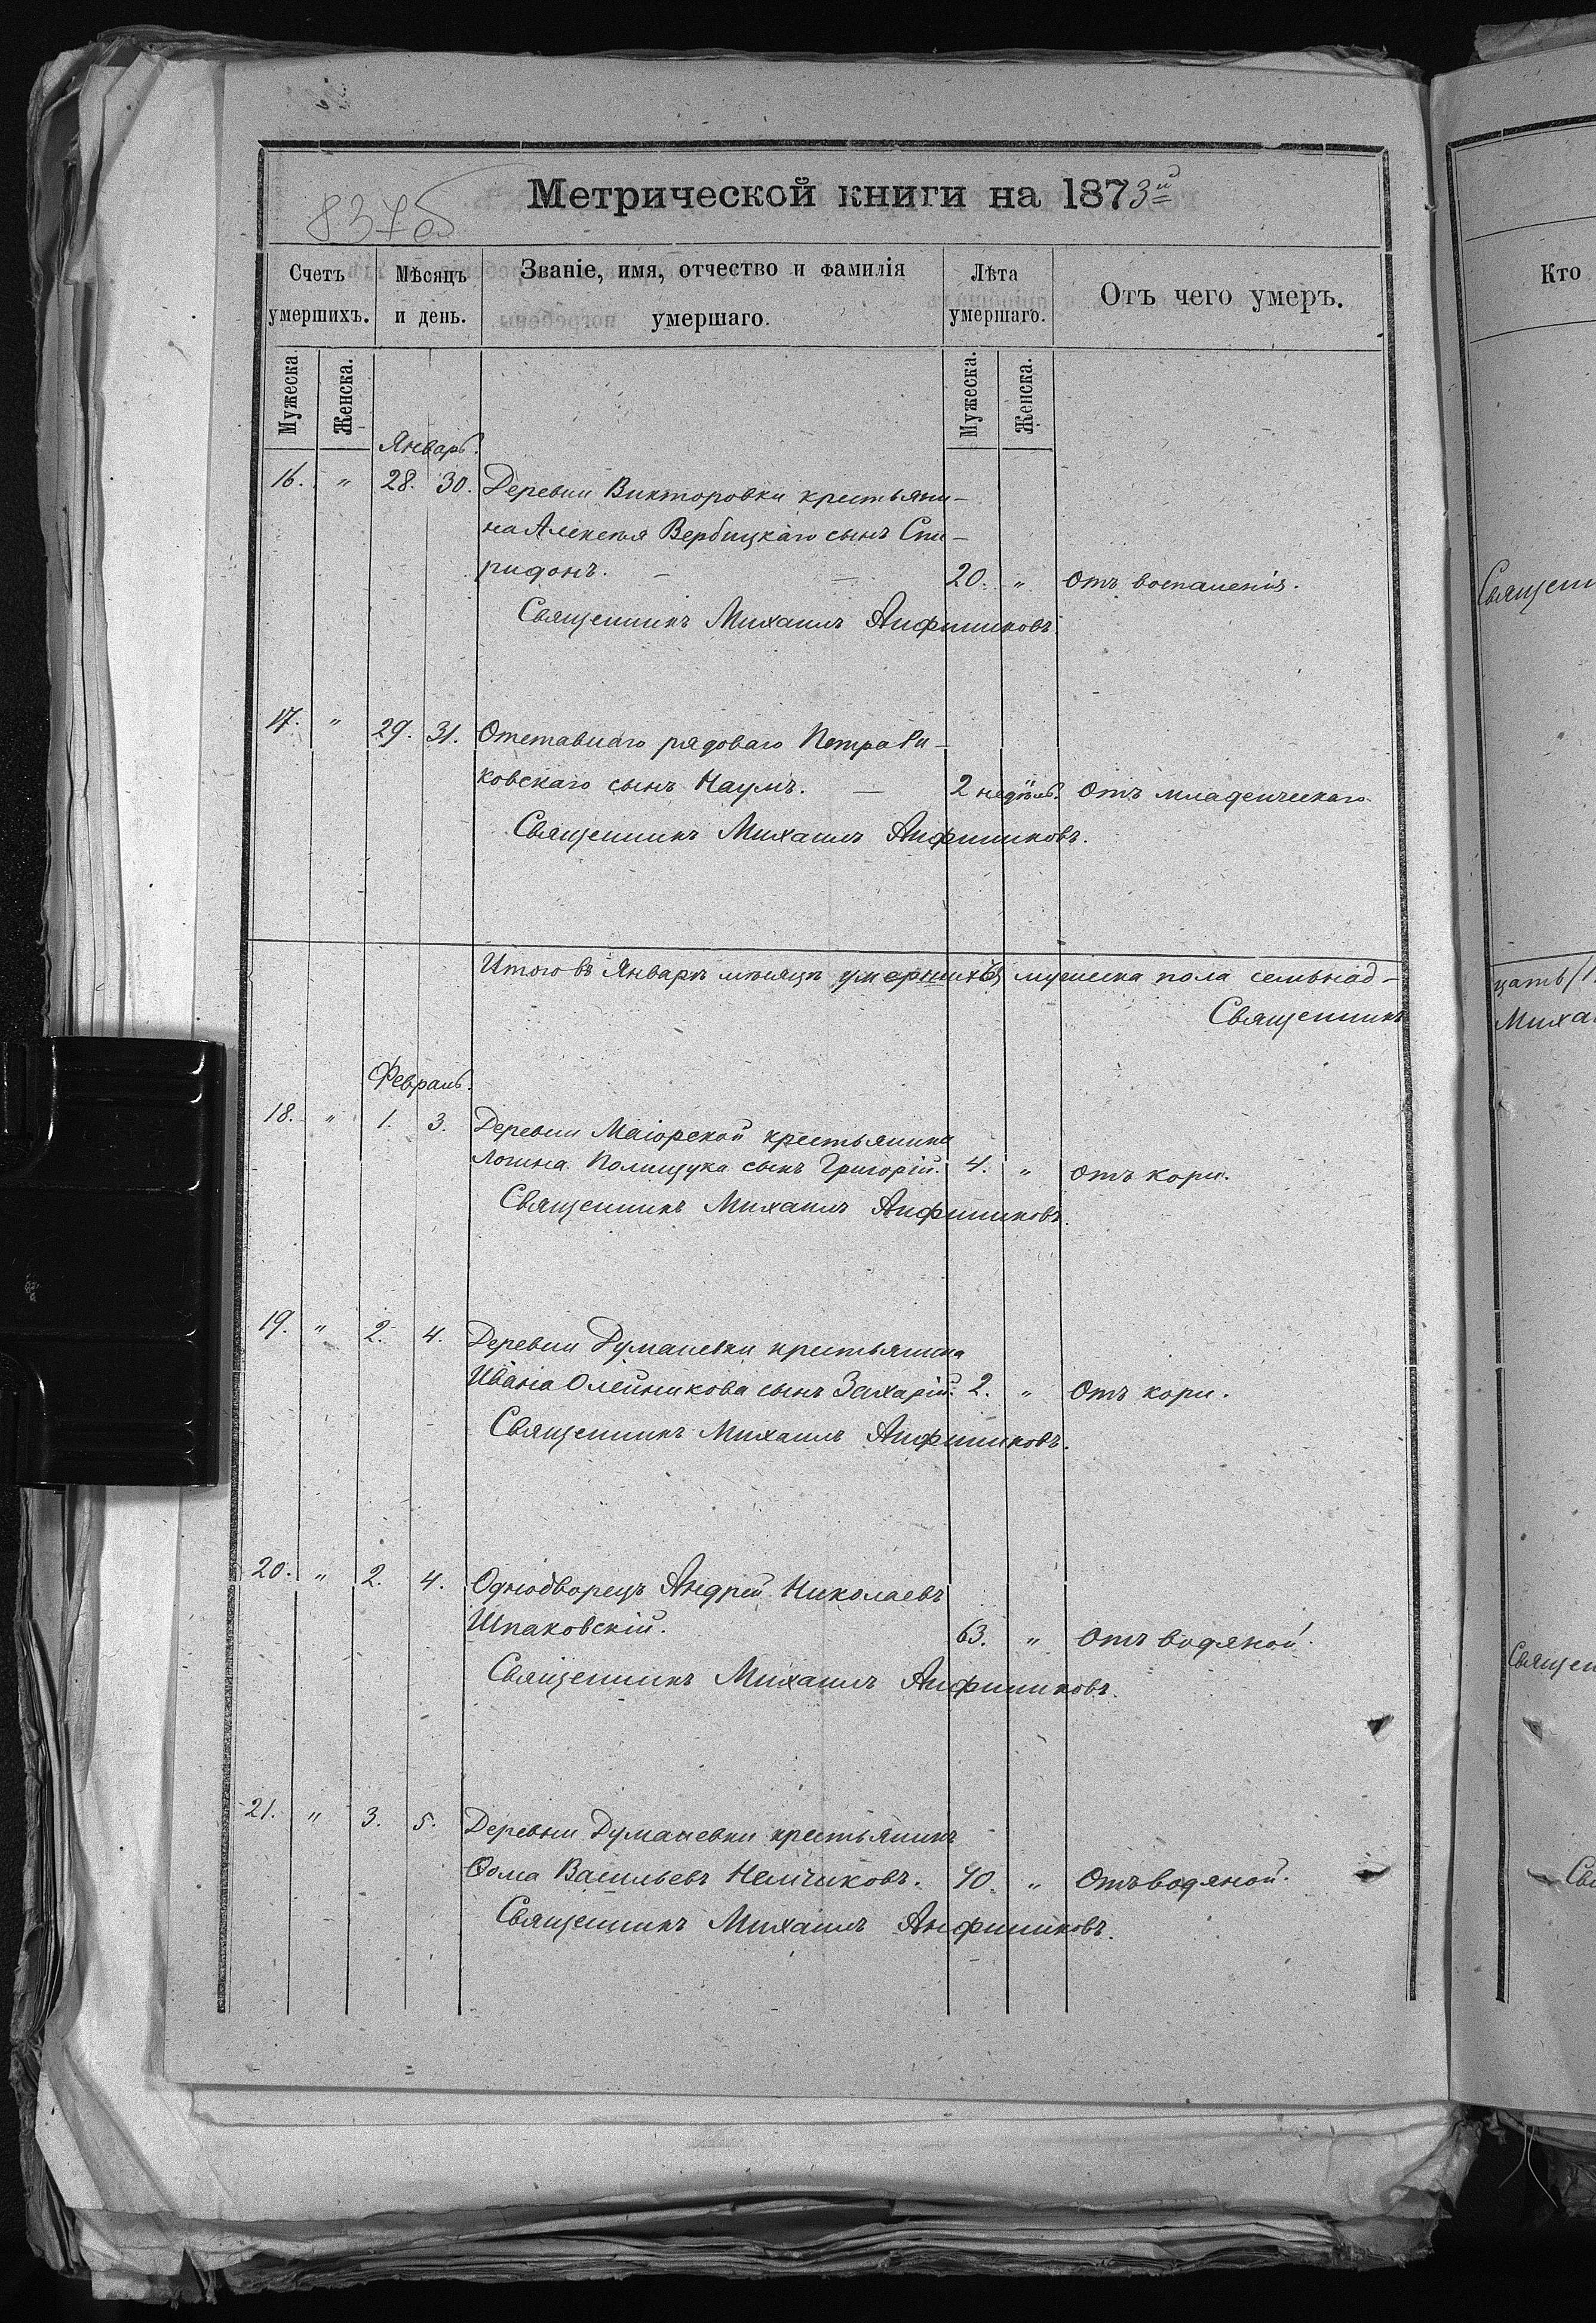 837об
Метрической книги на 1873й
Счетъ умершихъ. Мѣсяцъ и день. Званіе, имя, отчество и фамилія умершаго. Лѣта умершаго. Отъ чего умеръ.
Мужеска. Женска. Мужеска. Женска.
Январь.
16. " 28. 30. Деревни Викторовки крестьяни-
на Алексѣя Вербицкаго сынъ Спи-
ридонъ. — — 20. " Отъ воспаленія.
Священникъ Михаилъ Анфиниковъ.
17. " 29. 31. Отставнаго рядоваго Петра Ри-
ковскаго сынъ Наумъ. — 2 недѣль. Отъ младенческаго.
Священникъ Михаилъ Анфиниковъ.
Итого въ Январѣ мѣсяцѣ умершихъ мужеска пола семьнад-
Священникъ
Февраль.
18. " 1. 3. Деревни Маіорской крестьянина
Логина Полищука сынъ Григорій. 4. " отъ кори.
Священникъ Михаилъ Анфиниковъ.
19. " 2. 4. Деревни Думаневки крестьянина
Ивана Олейникова сынъ Захарій. 2. " Отъ кори.
Священникъ Михаилъ Анфиниковъ.
20. " 2. 4. Однодворецъ Андрей Николаевъ
Шпаковскій. 63. " Отъ водяной.
Священникъ Михаилъ Анфиниковъ.
21. " 3. 5. Деревни Думаневки крестьянинъ
Ѳома Васильевъ Немчиковъ. 40. " Отъ водяной.
Священникъ Михаилъ Анфиниковъ.
Кто
Священ
цать/1
Миха
Священ
Св